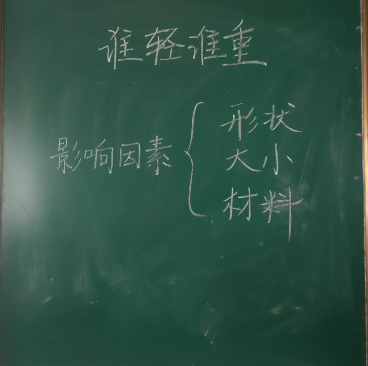 谁轻谁重
影响因素
形状
大小
材料